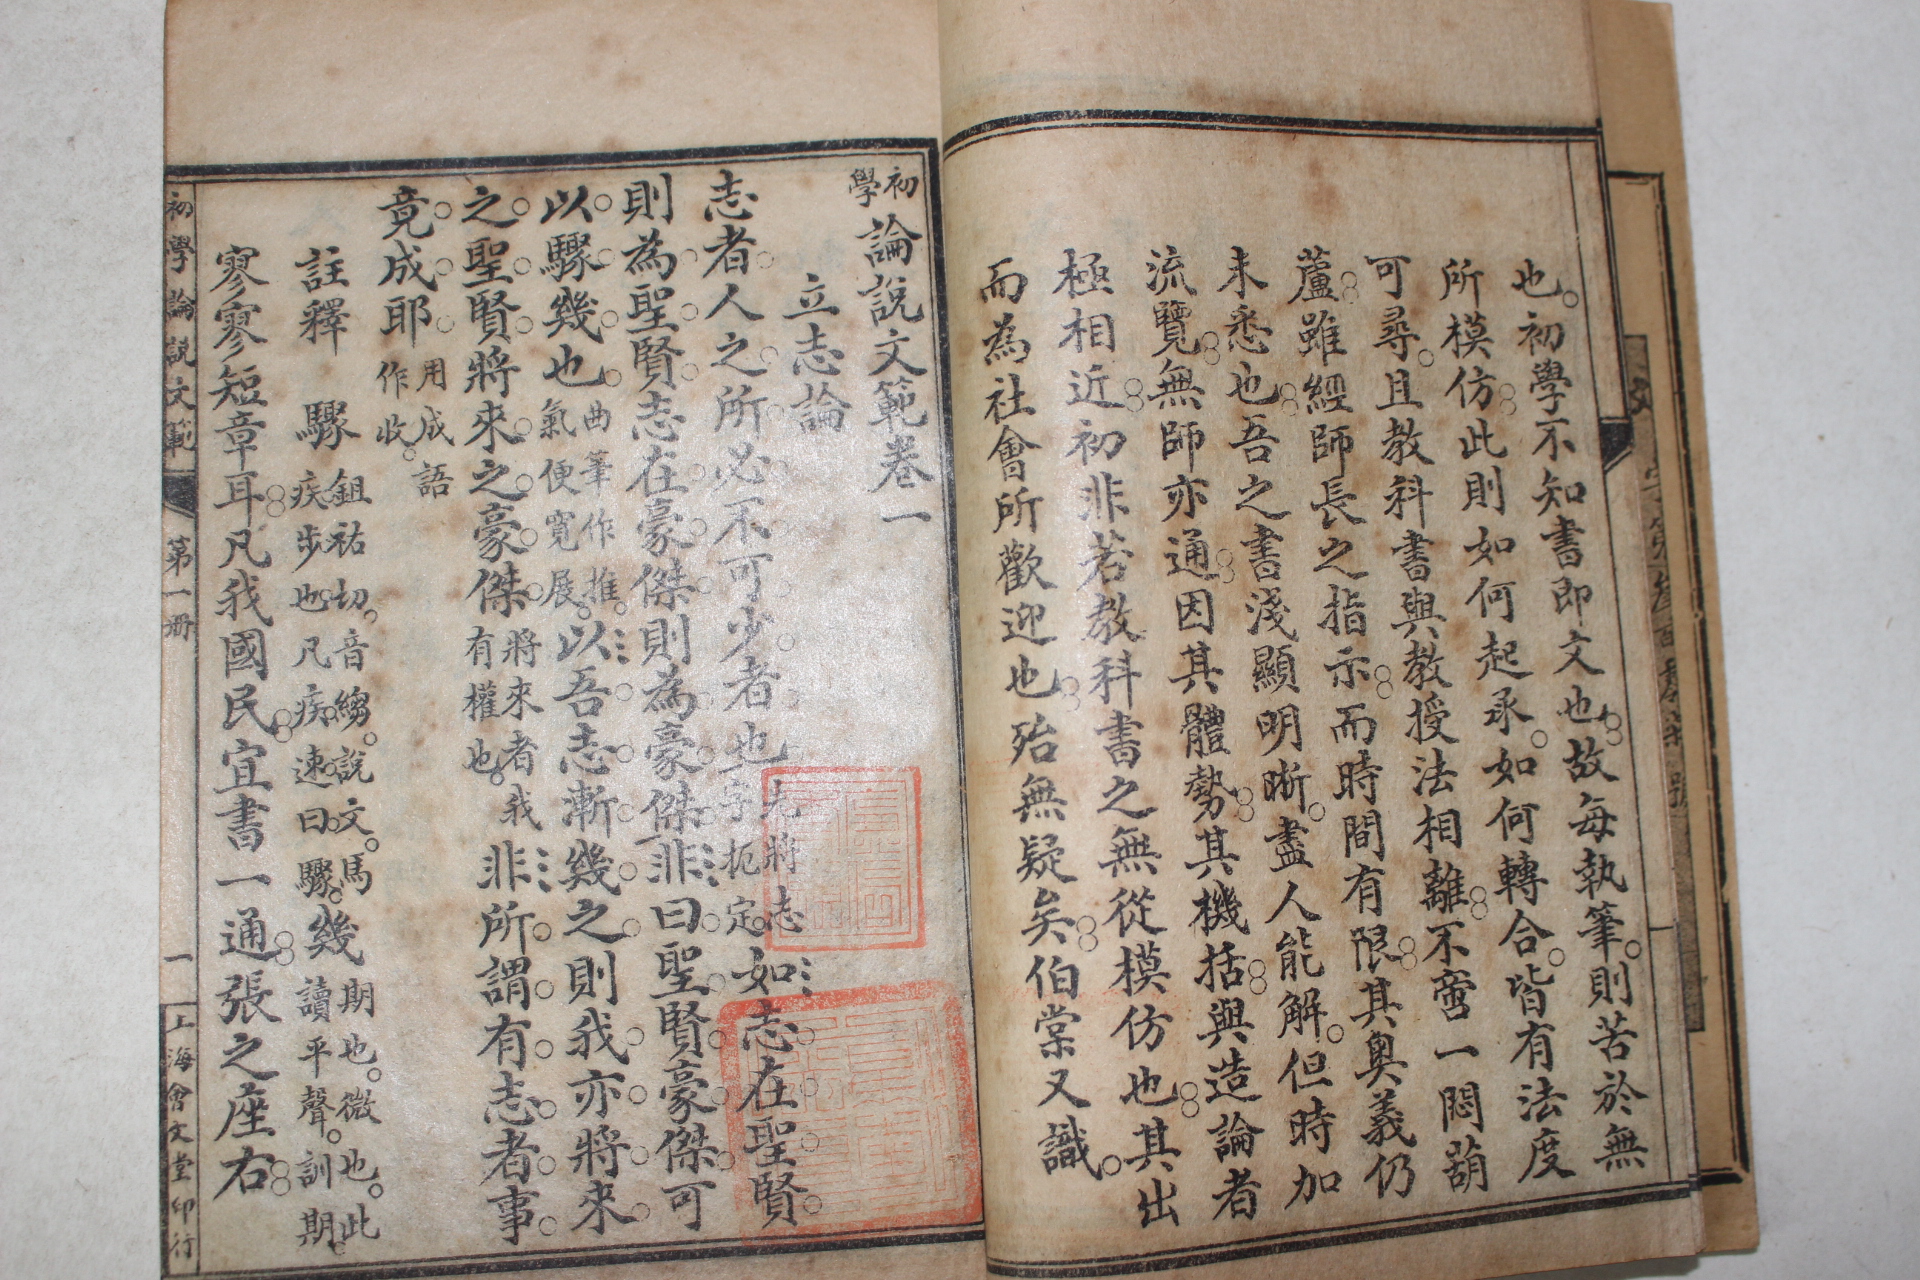 也初學不知書即文也故每執筆則苦於無
所模仿此則如何起承如何轉合皆有法度
可尋且教科書與教授法相離不啻一悶葫
蘆雖經師長之指示而時間有限其奧義仍
未悉也吾之書淺顯明晰盡人能解但時加
流覽無師亦通因其體勢其機括與造論者
極相近初非若教科書之無從模仿也其出
而為社會所歡迎也殆無疑矣伯棠又識
初學論說文範卷一
立志論
志者人之所必不可少者也先將志字扼定如志在聖賢
則為聖賢志在豪傑則為豪傑非曰聖賢豪傑可
以驟幾也曲筆作推氣便寬展以吾志漸幾之則我亦將來
之聖賢將來之豪傑將來者我有權也非所謂有志者事
竟成耶用成語作收
註釋 驟鉏祐切音縐說文馬疾步也凡疾速曰驟幾期也微也此讀平聲訓期
寥寥短章耳凡我國民宜書一通張之座右
初學論說文範 第一册 一 上海會文堂印行